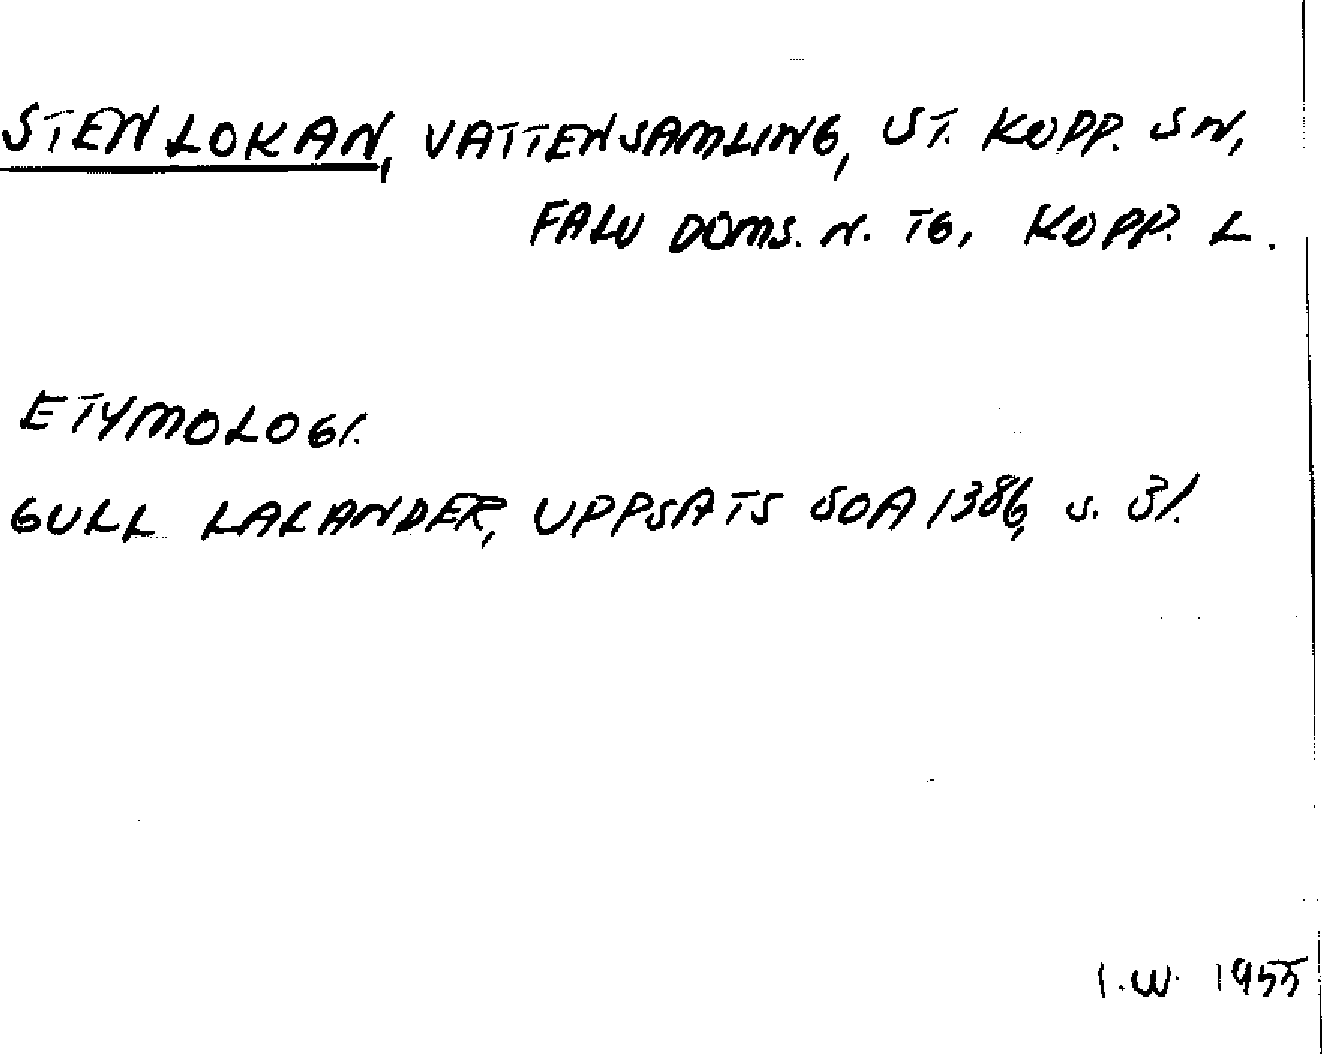 STENLOKAN, VATTENSAMLING, ST. KOPP. SN,
FALU DOMS. N. TG, KOPP. L.
ETYMOLOGI.
GULL LALANDER, UPPSATS SOA 1386, S. 31.
I.W. 1955